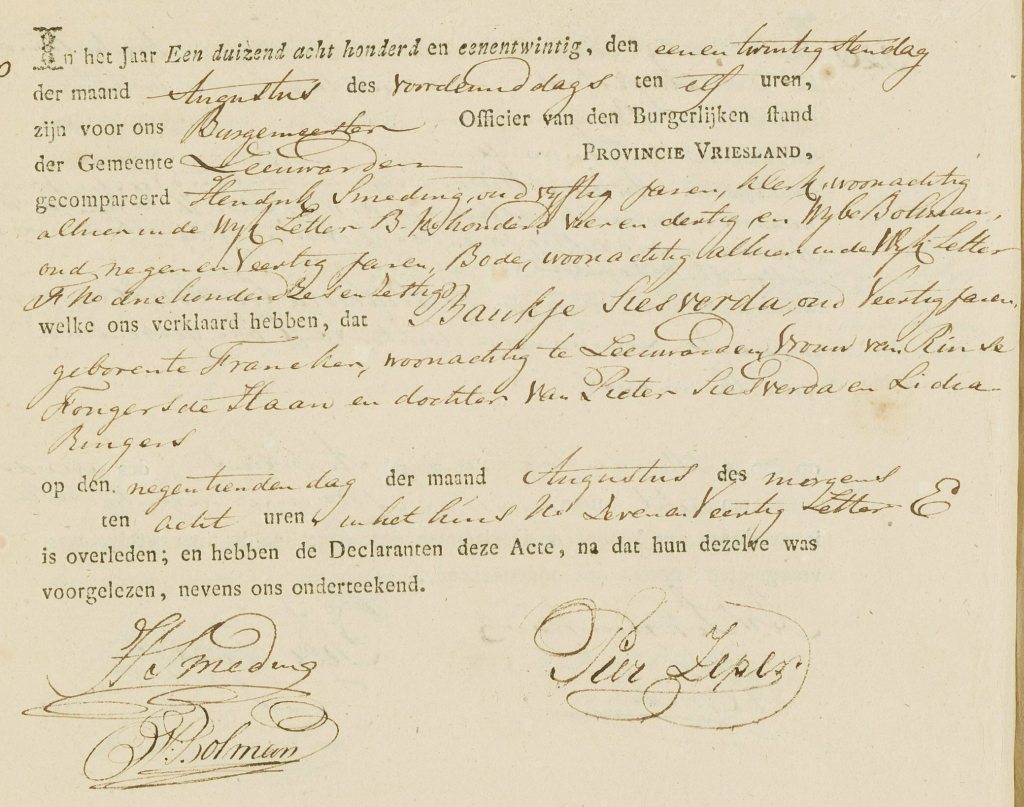 In het Jaar Een duizend acht honderd en eenentwintig, den eenentwintigsten dag
der maand Augustus des voordemiddags ten elf uren,
zijn voor ons Burgemeester Officier van den Burgerlijken stand
der Gemeente Leeuwarden PROVINCIE VRIESLAND,
gecompareerd Hendrik Smeding, oud vyftig Jaren, Klerk, woonachtig
alhier in de Wyk Letter B. No honderd vier en dertig en Wybe Bolman,
oud negen en Veertig Jaren, Bode, woonachtig alhier in de Wyk Letter
F No driehonderd Zes en Zestig
welke ons verklaard hebben, dat Baukje Siesverda, oud Veertig Jaren,
geboren te Franeker, woonachtig te Leeuwarden, Vrouw van Rinse
Fongers de Haan en dochter van Pieter Siesverda en Lidia
Ringers
op den negentienden dag der maand Augustus des morgens
ten acht uren, in het huis No Zeven en Veertig Letter E
is overleden; en hebben de Declaranten deze Acte, na dat hun dezelve was
voorgelezen, nevens ons onderteekend.
H Smeding
Pier Zeper
W. Bolman